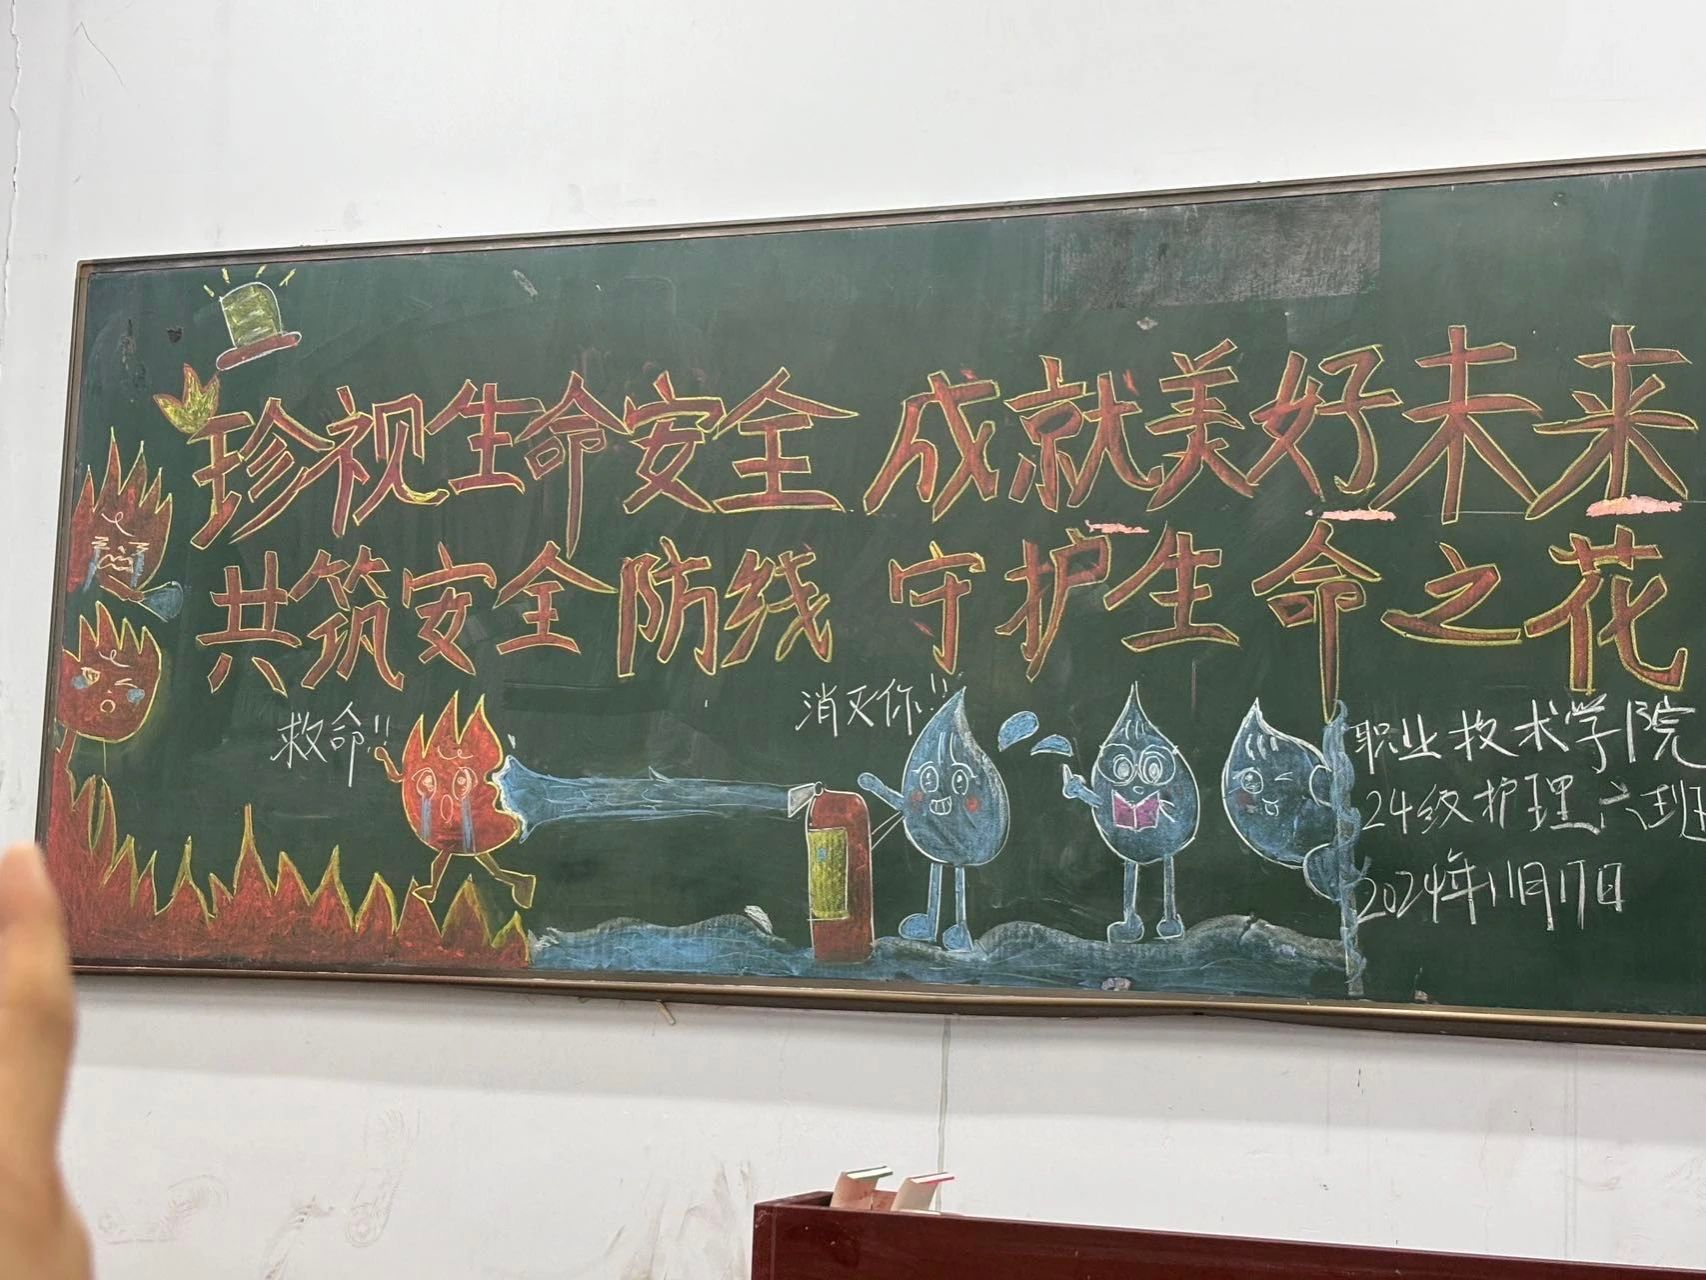 珍视生命安全 成就美好未来
共筑安全防线 守护生命之花
救命!!
消灭你!!
职业技术学院
24级护理六班
2024年11月17日